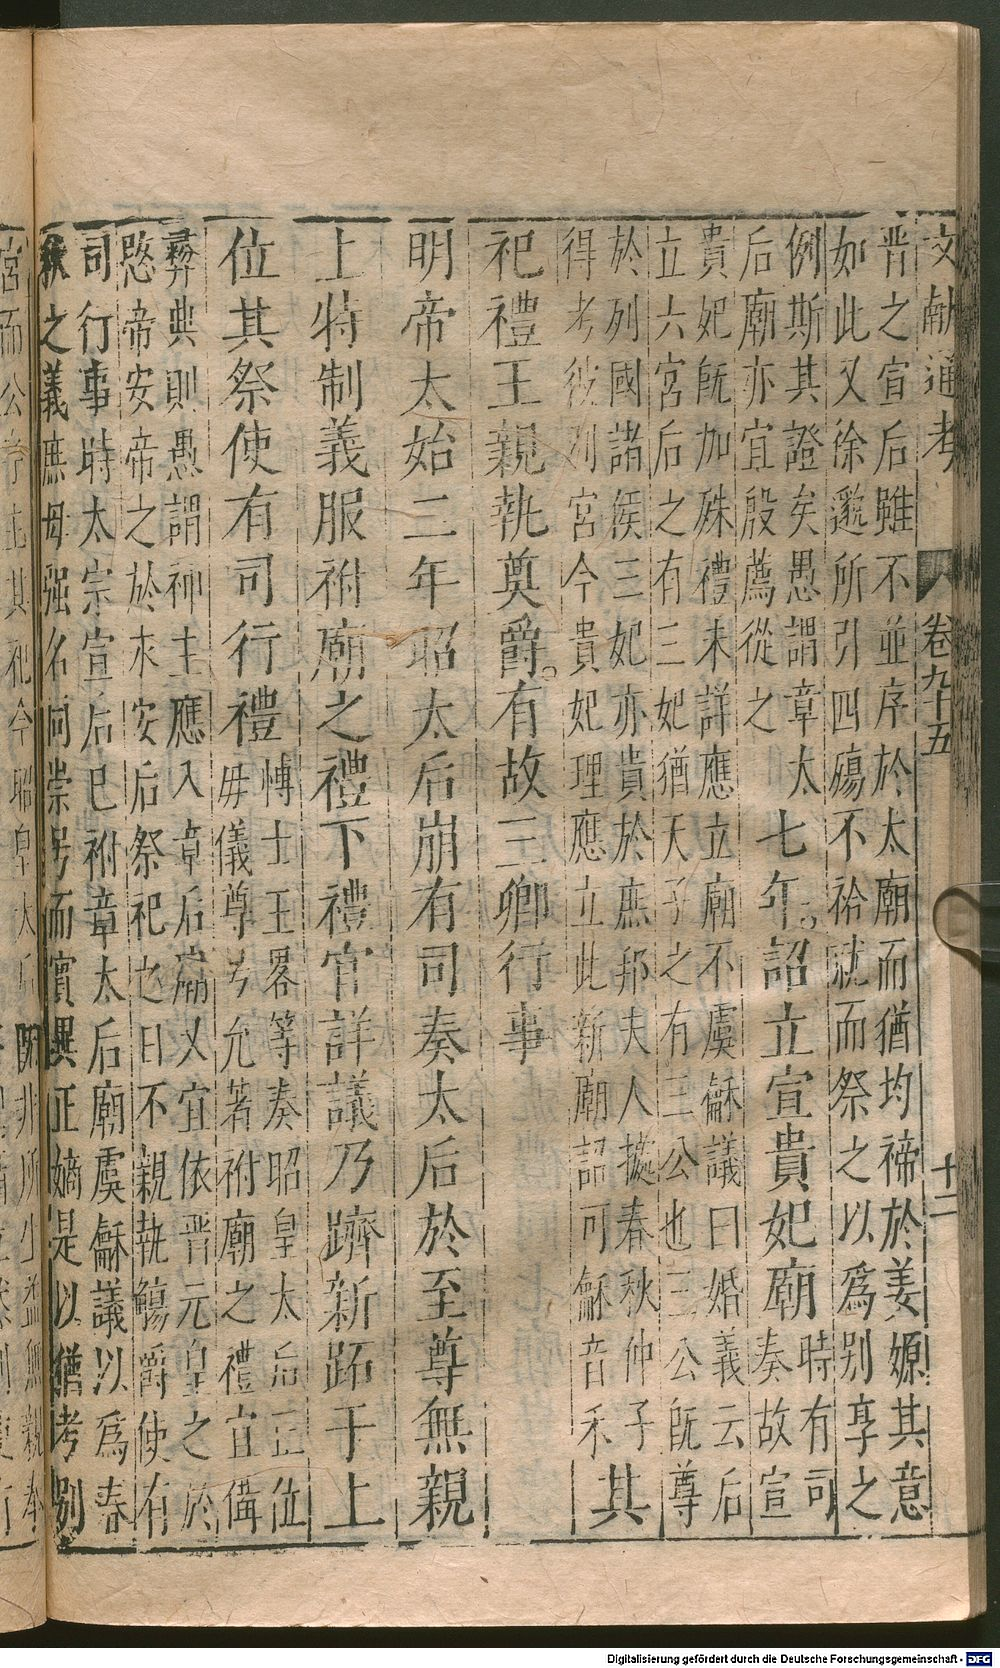 文獻通考 卷九十五 十二
晋之宣后雖不並序於太廟而猶均禘於姜嫄其意
如此又徐邈所引四殤不祫就而祭之以爲别享之
例斯其證矣愚謂章太
后廟亦宜殷薦從之
七年。詔立宣貴妃廟
時有司
奏故宣
貴妃旣加殊禮未詳應立廟不虞龢議曰婚義云后
立六宮后之有三妃猶天子之有三公也三公旣尊
於列國諸侯三妃亦貴於庶邦夫人據春秋仲子
得考彼列宮今貴妃理應立此新廟詔可龢音禾
其
祀禮王親執奠爵。有故三卿行事
明帝太始二年昭太后崩有司奏太后於至尊無親
上特制義服祔廟之禮下禮官詳議乃躋新祏于上
位其祭使有司行禮
愽士王畧等奏昭皇太后正位
毋儀尊号允著祔廟之禮宜備
彛典則愚謂神主應入章后廟又宜依晋元皇之於
愍帝安帝之於永安后祭祀之日不親執觴爵使有
司行事時太宗宣后已祔章太后廟虞龢議以爲春
秋之義庶母强名同崇号而實異正嫡是以猶考别
宮而公子主其祀今昭皇太后旣非所生益無親奉
Digitalisierung gefördert durch die Deutsche Forschungsgemeinschaft - DFG